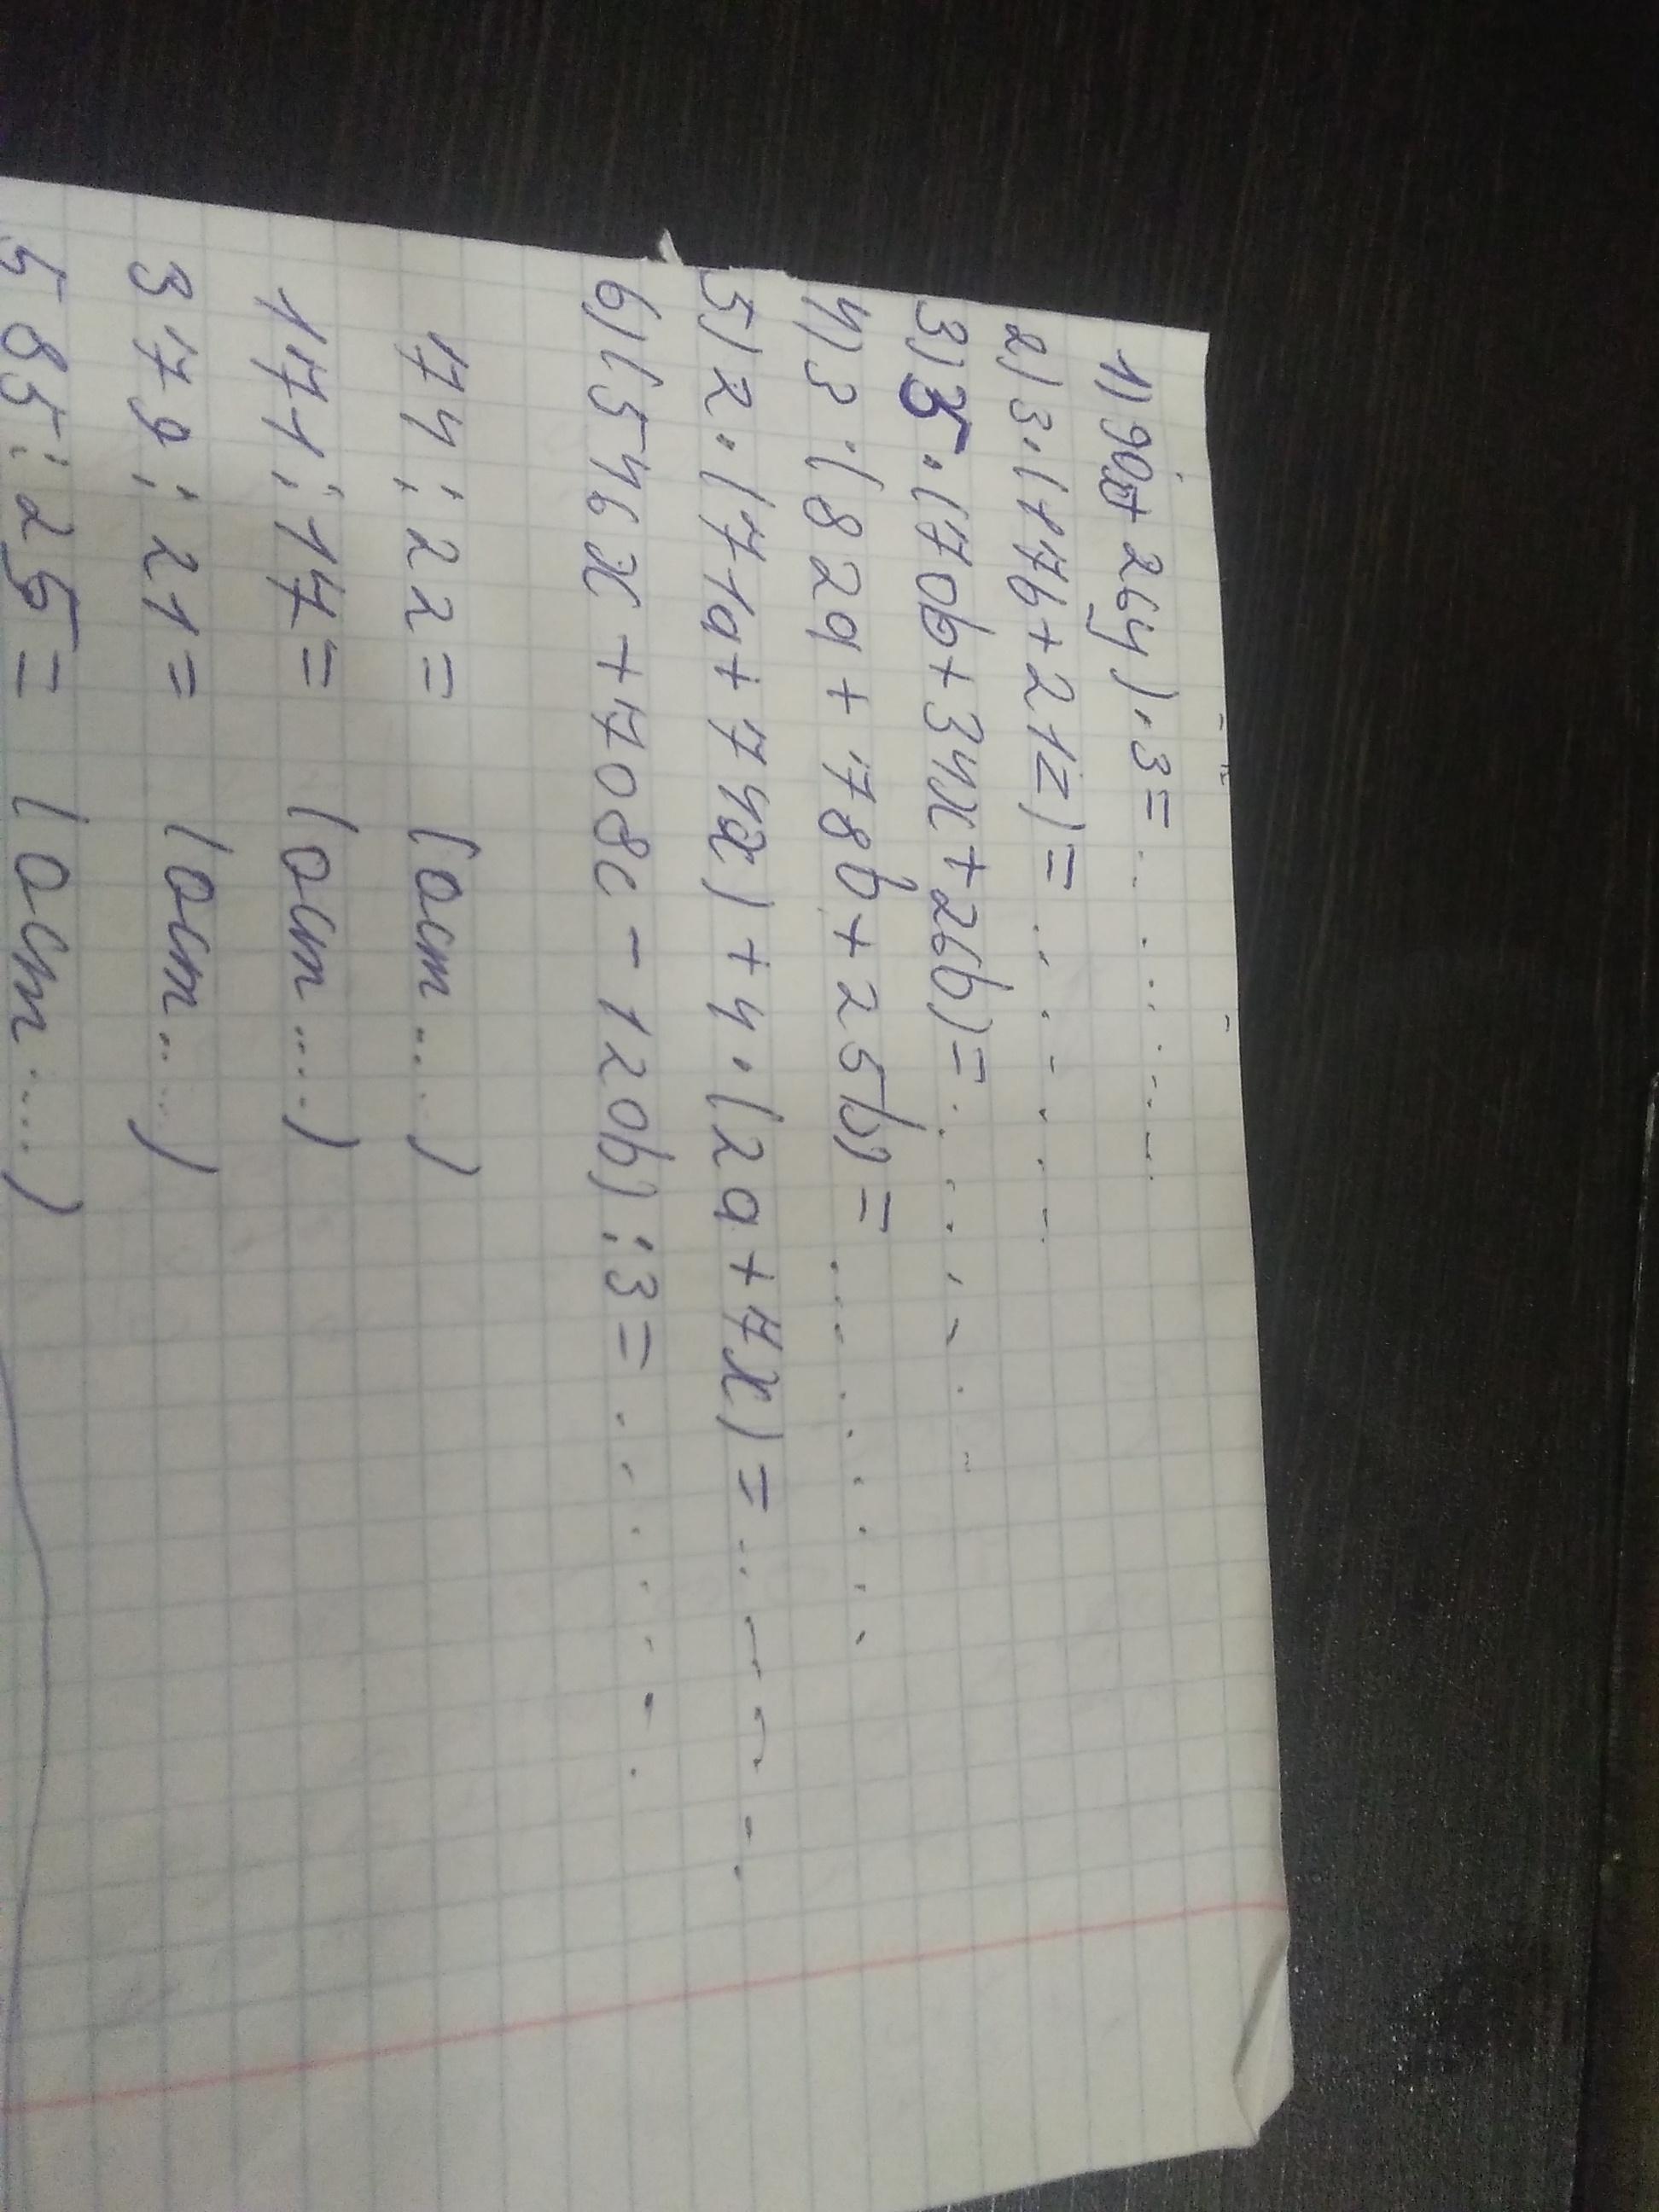 1) 90x + 26y) · 3 = ..........
2) 3 · (17b + 21z) = ..........
3) 5 · (70b + 34x + 26b) = ..........
4) 3 · (82a + 78b + 25b) = ..........
5) 2 · (71a + 74x) + 4 · (2a + 7x) = ..........
6) (546x + 708c - 120b) : 3 = ..........
74 : 22 = (ост ....)
171 : 17 = (ост ....)
379 : 21 = (ост ....)
585 : 25 = (ост ....)